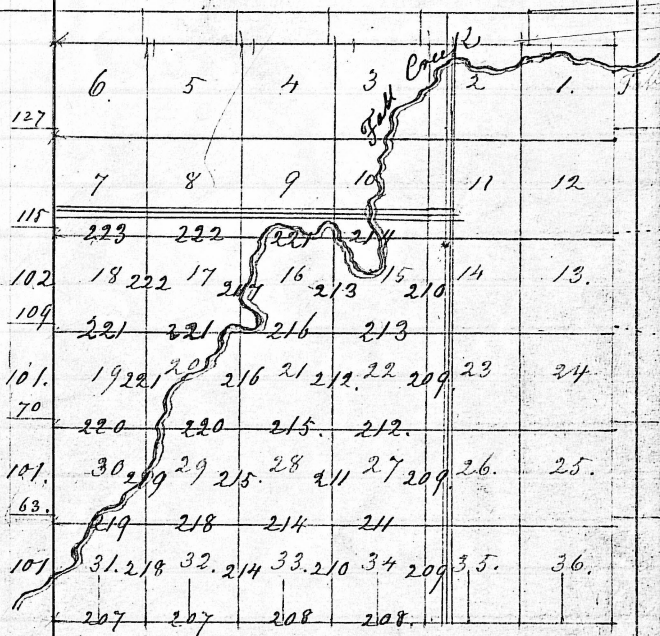 Fall Creek
6. 5 4 3 2 1.
127
7 8 9 10 11 12
115
223 222 221 214
102 18 222 17 217 16 213 15 210 14 13.
109
221 221 216 213
101. 19 221 20 216 21 212. 22 209 23 24
70
220 220 215. 212.
101. 30 219 29 215. 28 211 27 209. 26. 25.
63.
219 218 214 211
101 31. 218 32. 214 33. 210 34 209 35. 36.
207 207 208 208.